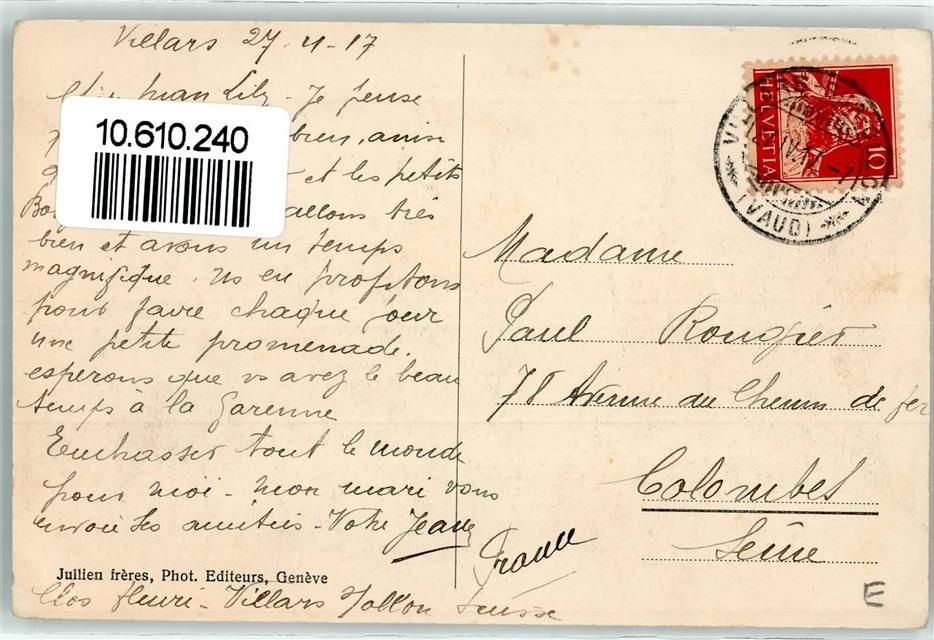 Villars 27-4-17
Lily - Je pense
bien, ainsi
et les petits
allons très
bien et avons un temps
magnifique. Ns en profitons
pour faire chaque jour
une petite promenade.
esperons que vs avez le beau
temps à la Garenne
Embrasser tout le monde
pour moi - mon mari vous
envoie ses amitiés - Votre Jeanne
Clos fleuri - Villars s/ollon Suisse
Jullien frères, Phot. Editeurs, Genève
10.610.240
HELVETIA
10
(VAUD)
Madame
Paul Rougier
78 Avenue du Chemin de fer
Colombes
Seine
France
E